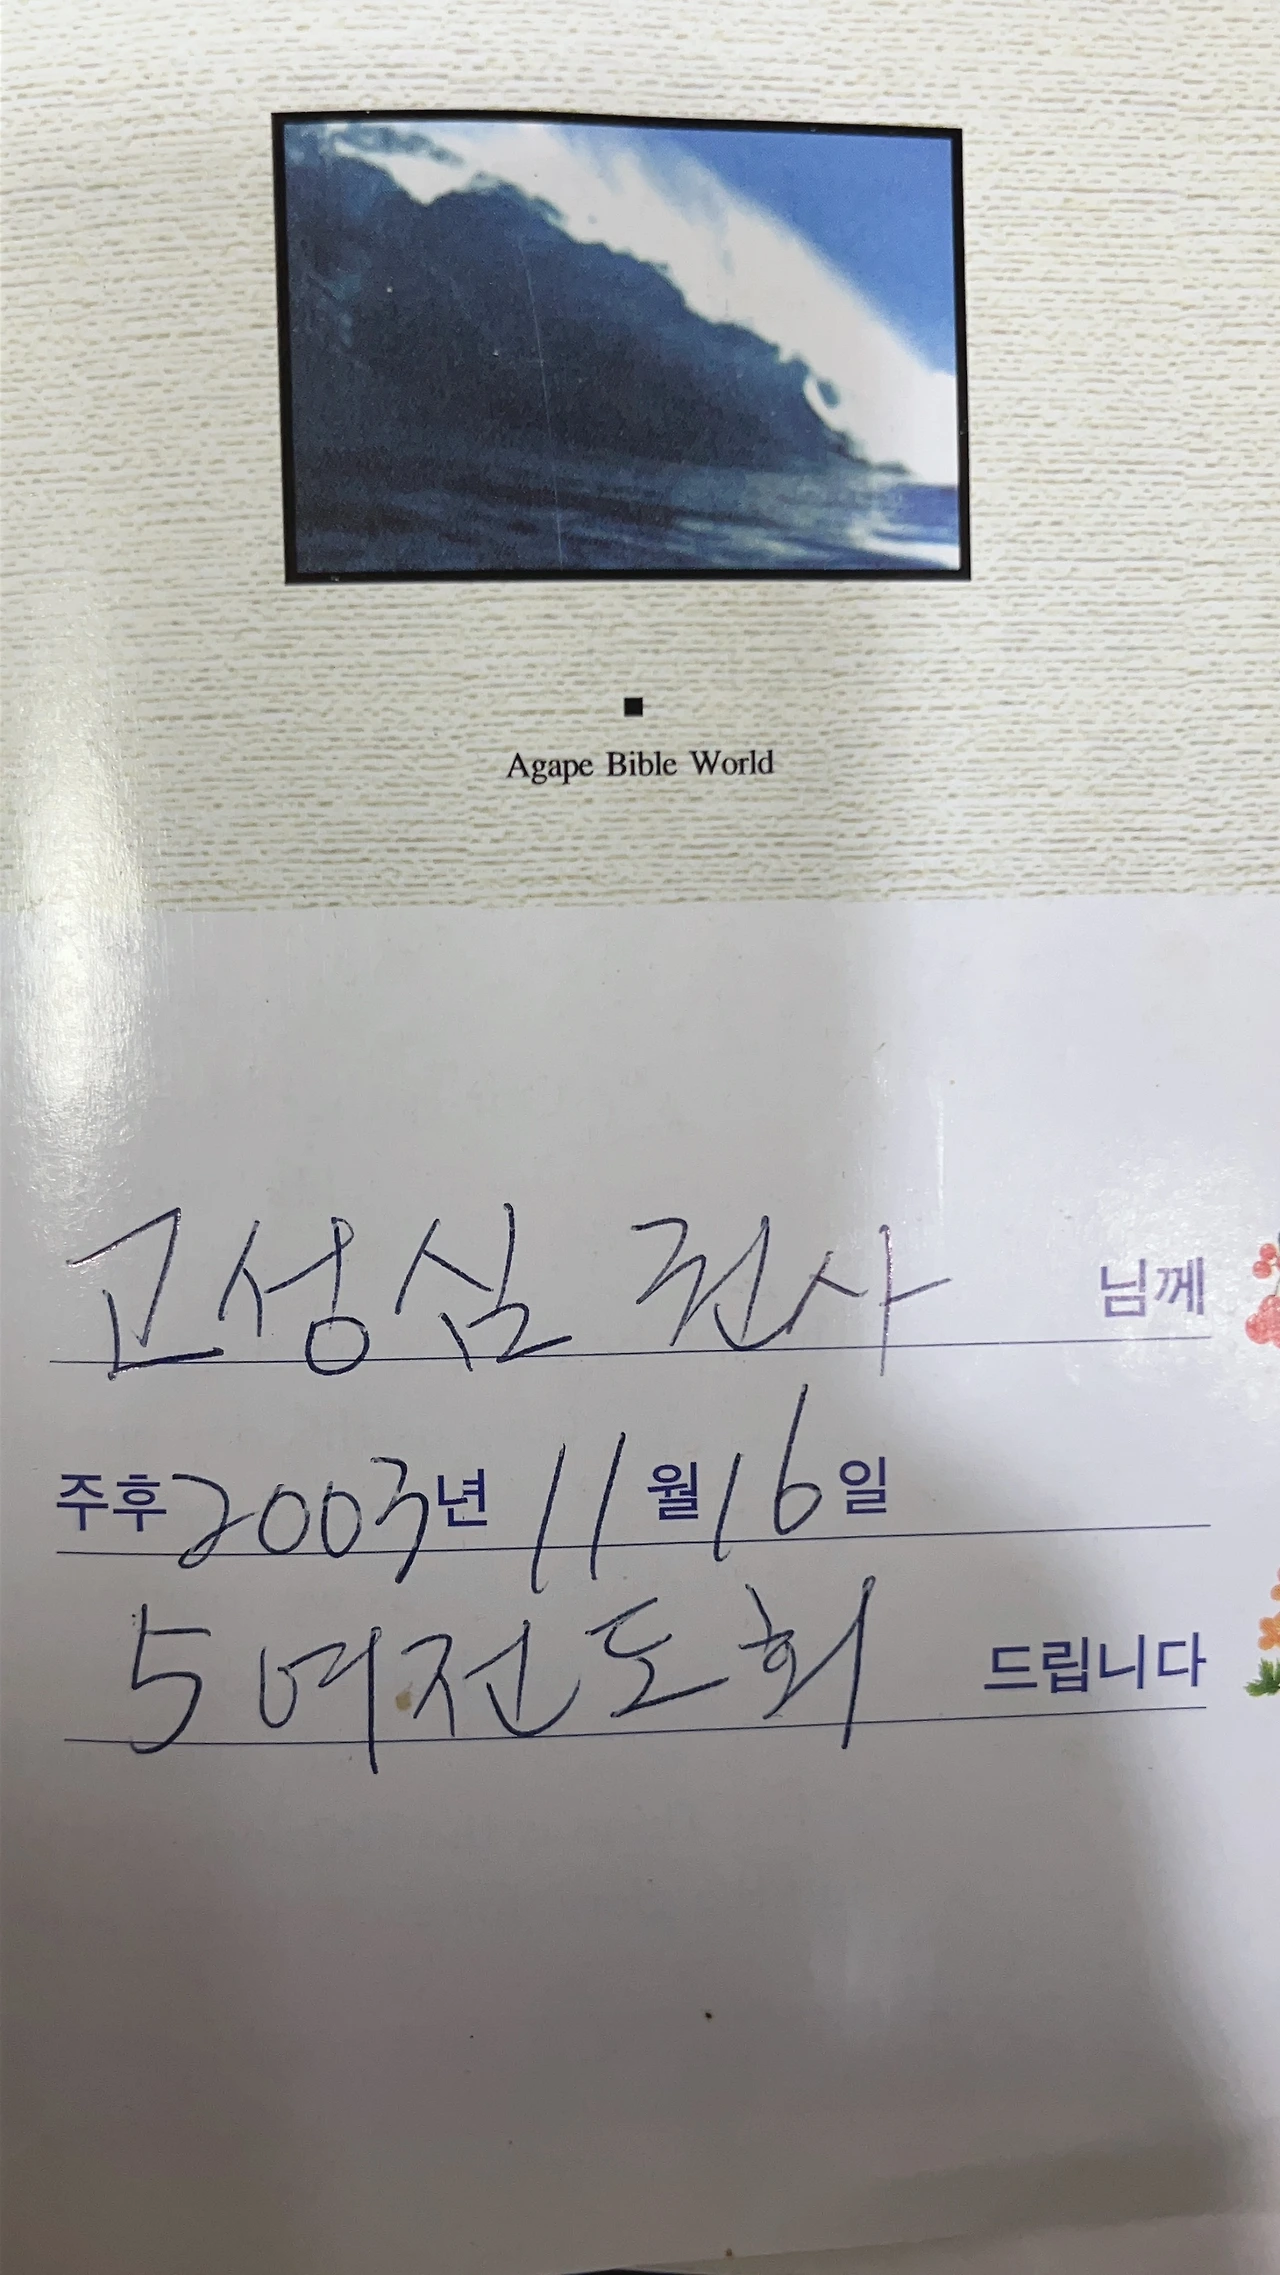 Agape Bible World
고성심 권사 님께
주후 2003년 11월 16일
5 여전도회 드립니다